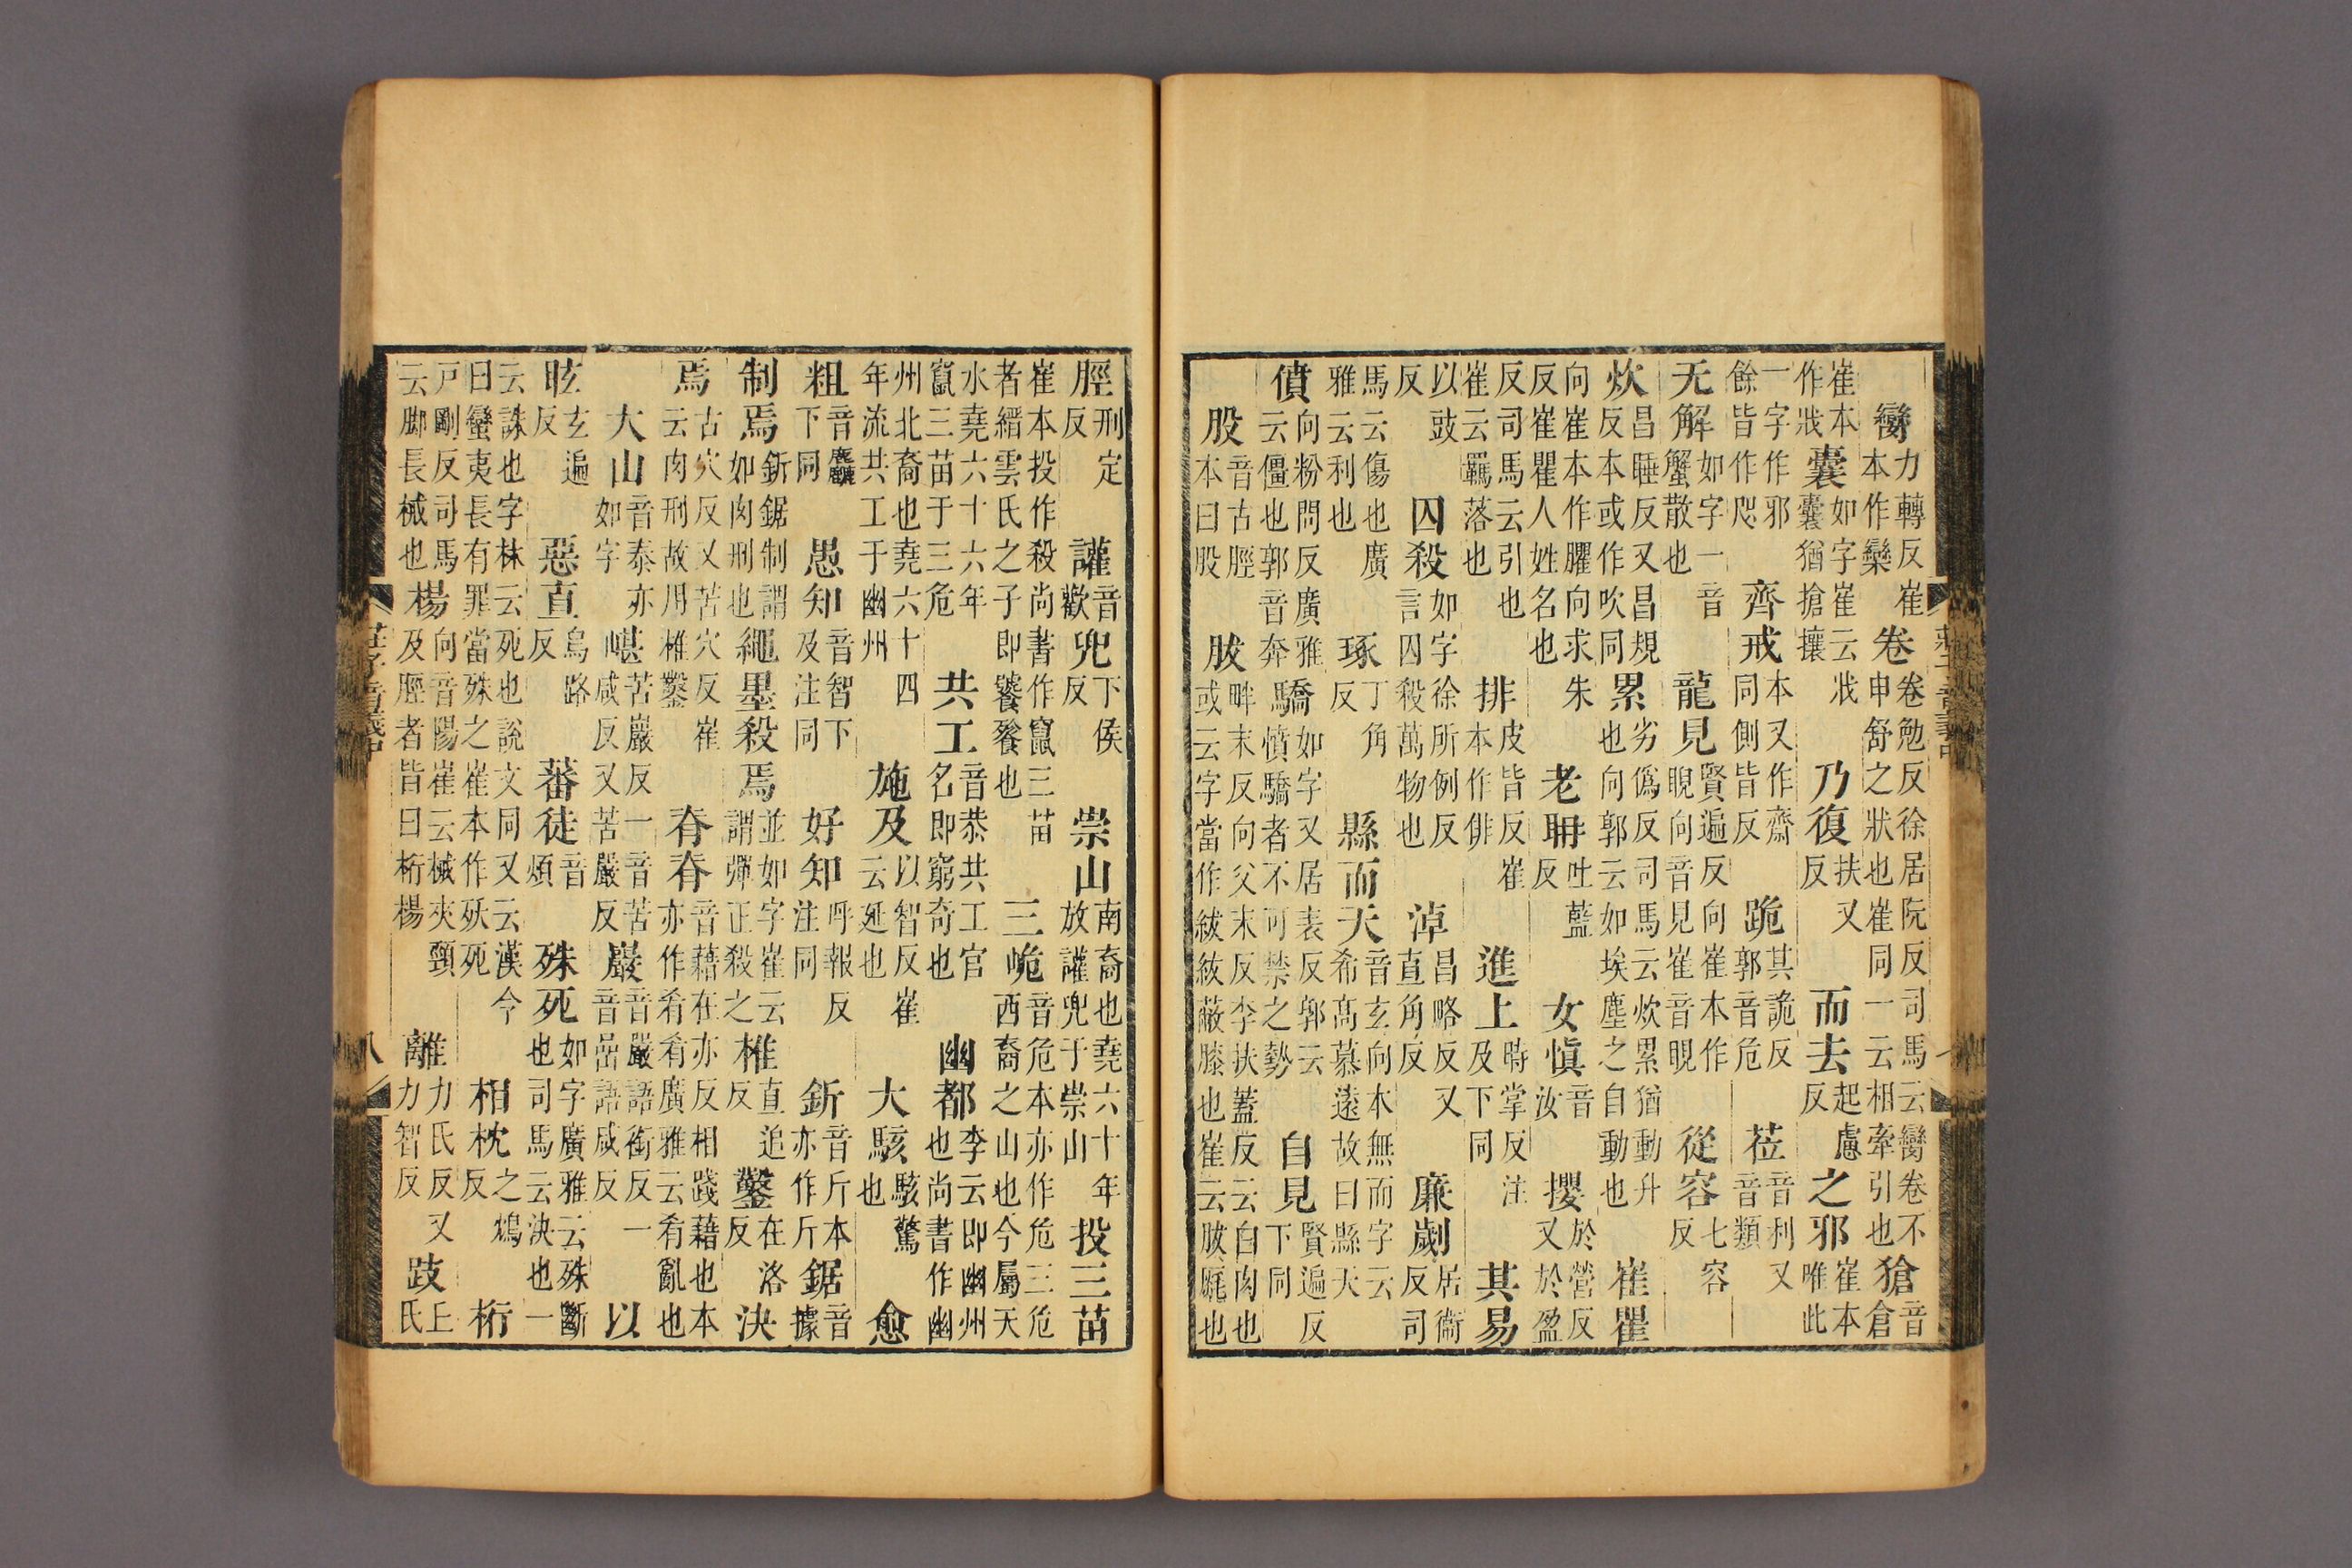 臠力轉反崔本作欒卷卷勉反徐居阮反司馬云臠卷不申舒之狀也崔同一云相牽引也獊音倉
崔本作戕囊如字崔云戕囊猶搶攘乃復扶又反而去起慮反之邪崔本唯此
一字作邪餘皆作咫齊戒本又作齋同側皆反跪其詭反郭音危莅音利又音類
无解如字一音蟹散也龍見賢遍反向崔本作睍向音見崔音睍從容七容反
炊昌睡反又昌規反本或作吹同累劣偽反司馬云炊累猶動升也向郭云如埃塵之自動也崔瞿
向崔本作臞向求朱反崔瞿人姓名也老聃吐藍反女慎音汝攖於營反又於盈
反司馬云引也崔云羈落也排皮皆反崔本作俳進上時掌反注及下同其易
以豉反囚殺如字徐所例反言囚殺萬物也淖昌略反又直角反廉劌居衞反司
馬云傷也廣雅云利也琢丁角反縣而天音玄向本無而字云希高慕遠故曰縣天
僨向粉問反廣雅云僵也郭音奔驕如字又居表反郭云憤驕者不可禁之勢自見賢遍反下同
股音古脛本曰股胈畔末反向父末反李扶蓋反云白肉也或云字當作紱紱蔽膝也崔云胈也
脛刑定反讙音歡兜下侯反崇山南裔也堯六十年放讙兜于崇山投三苗
崔本投作殺尚書作竄三苗者縉雲氏之子即饕餮也三峗音危本亦作危三危西裔之山也今屬天
水堯六十六年竄三苗于三危共工音恭共工官名即窮奇也幽都李云即幽州也尚書作幽
州北裔也堯六十四年流共工于幽州施及以智反崔云延也大駭駭驚也愈
粗音麤下同愚知音智下及注同好知呼報反注同釿音斤本亦作斤鋸音據
制焉釿鋸制謂如肉刑也繩墨殺焉並如字崔云謂彈正殺之椎直追反鑿在洛反決
焉古穴反又苦穴反崔云肉刑故用椎鑿脊脊音藉在亦反相踐藉也本亦作肴肴廣雅云肴亂也
大山音泰亦如字嵁苦巖反一音苦咸反又苦嚴反巖音嚴語銜反一音喦語咸反以
眩玄遍反惡直烏路反蕃徒音煩殊死如字廣雅云殊斷也司馬云決也一
云誅也字林云死也說文同又云漢令曰蠻夷長有罪當殊之崔本作殀死相枕之鴆反桁
戶剛反司馬云腳長械也楊向音陽崔云械夾頸及脛者皆曰桁楊離力氏反又力智反跂上氏